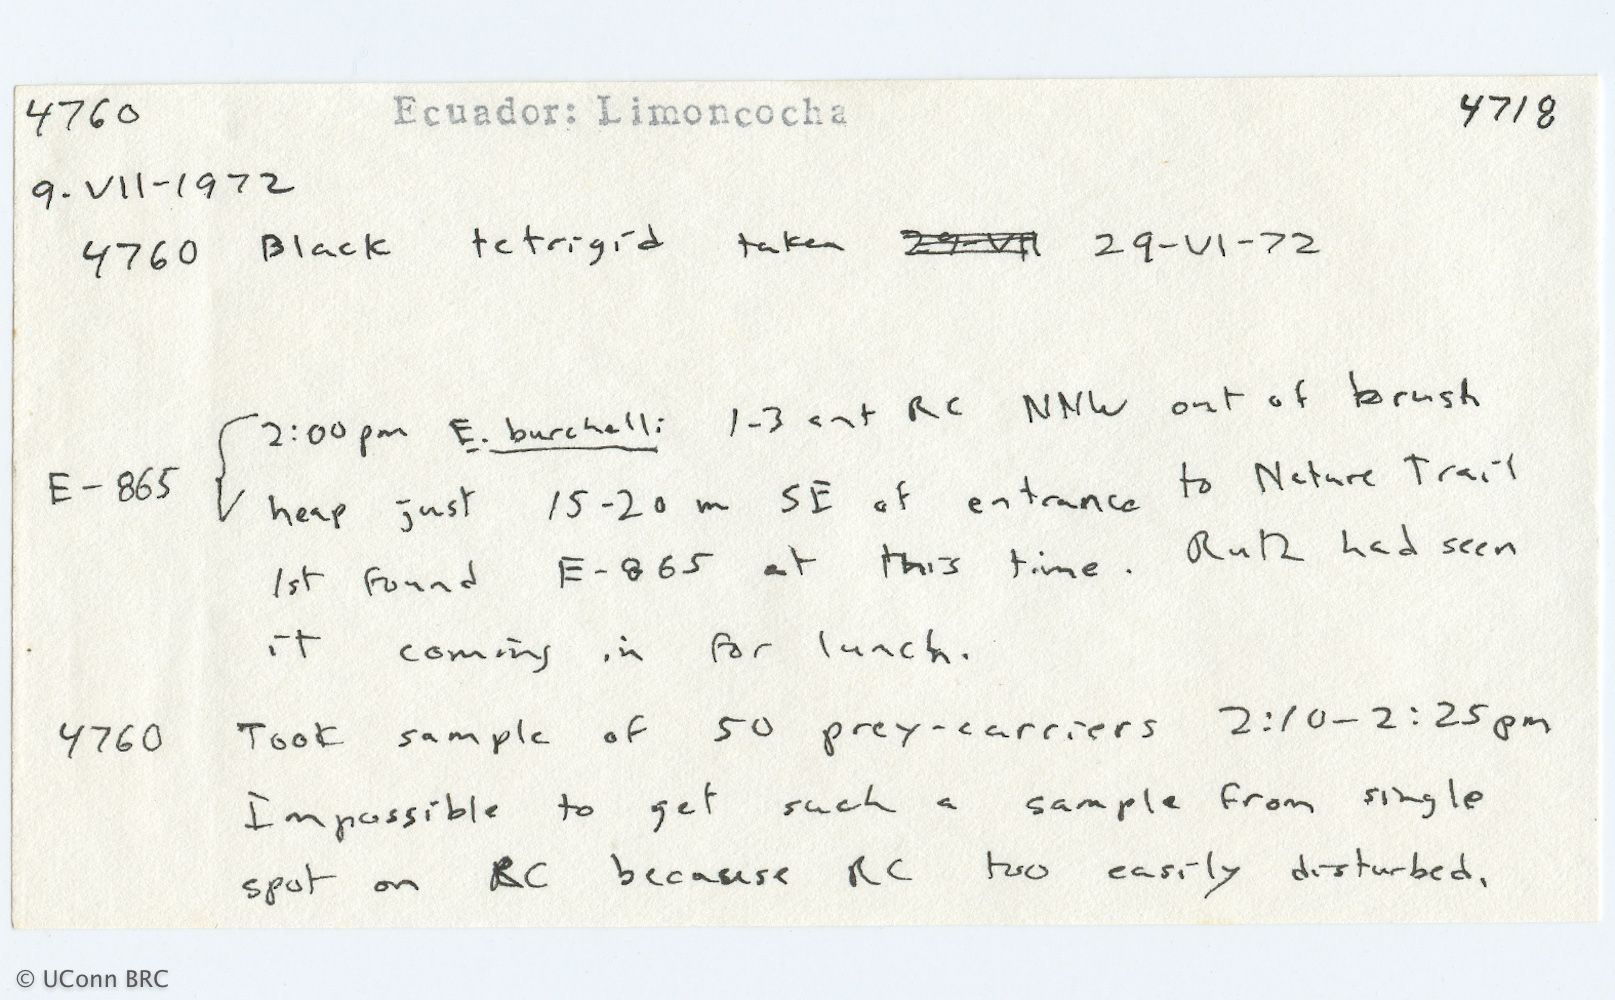 4760 Ecuador: Limoncocha 4718
9-VII-1972
4760 Black tetrigid taken 29-VII 29-VI-72
2:00pm E. burchelli 1-3 ant RC NNW out of brush
E-865 heap just 15-20 m SE of entrance to Nature Trail
1st found E-865 at this time. Ruth had seen
it coming in for lunch.
4760 Took sample of 50 prey-carriers 2:10-2:25pm
Impossible to get such a sample from single
spot on RC because RC too easily disturbed.
© UConn BRC